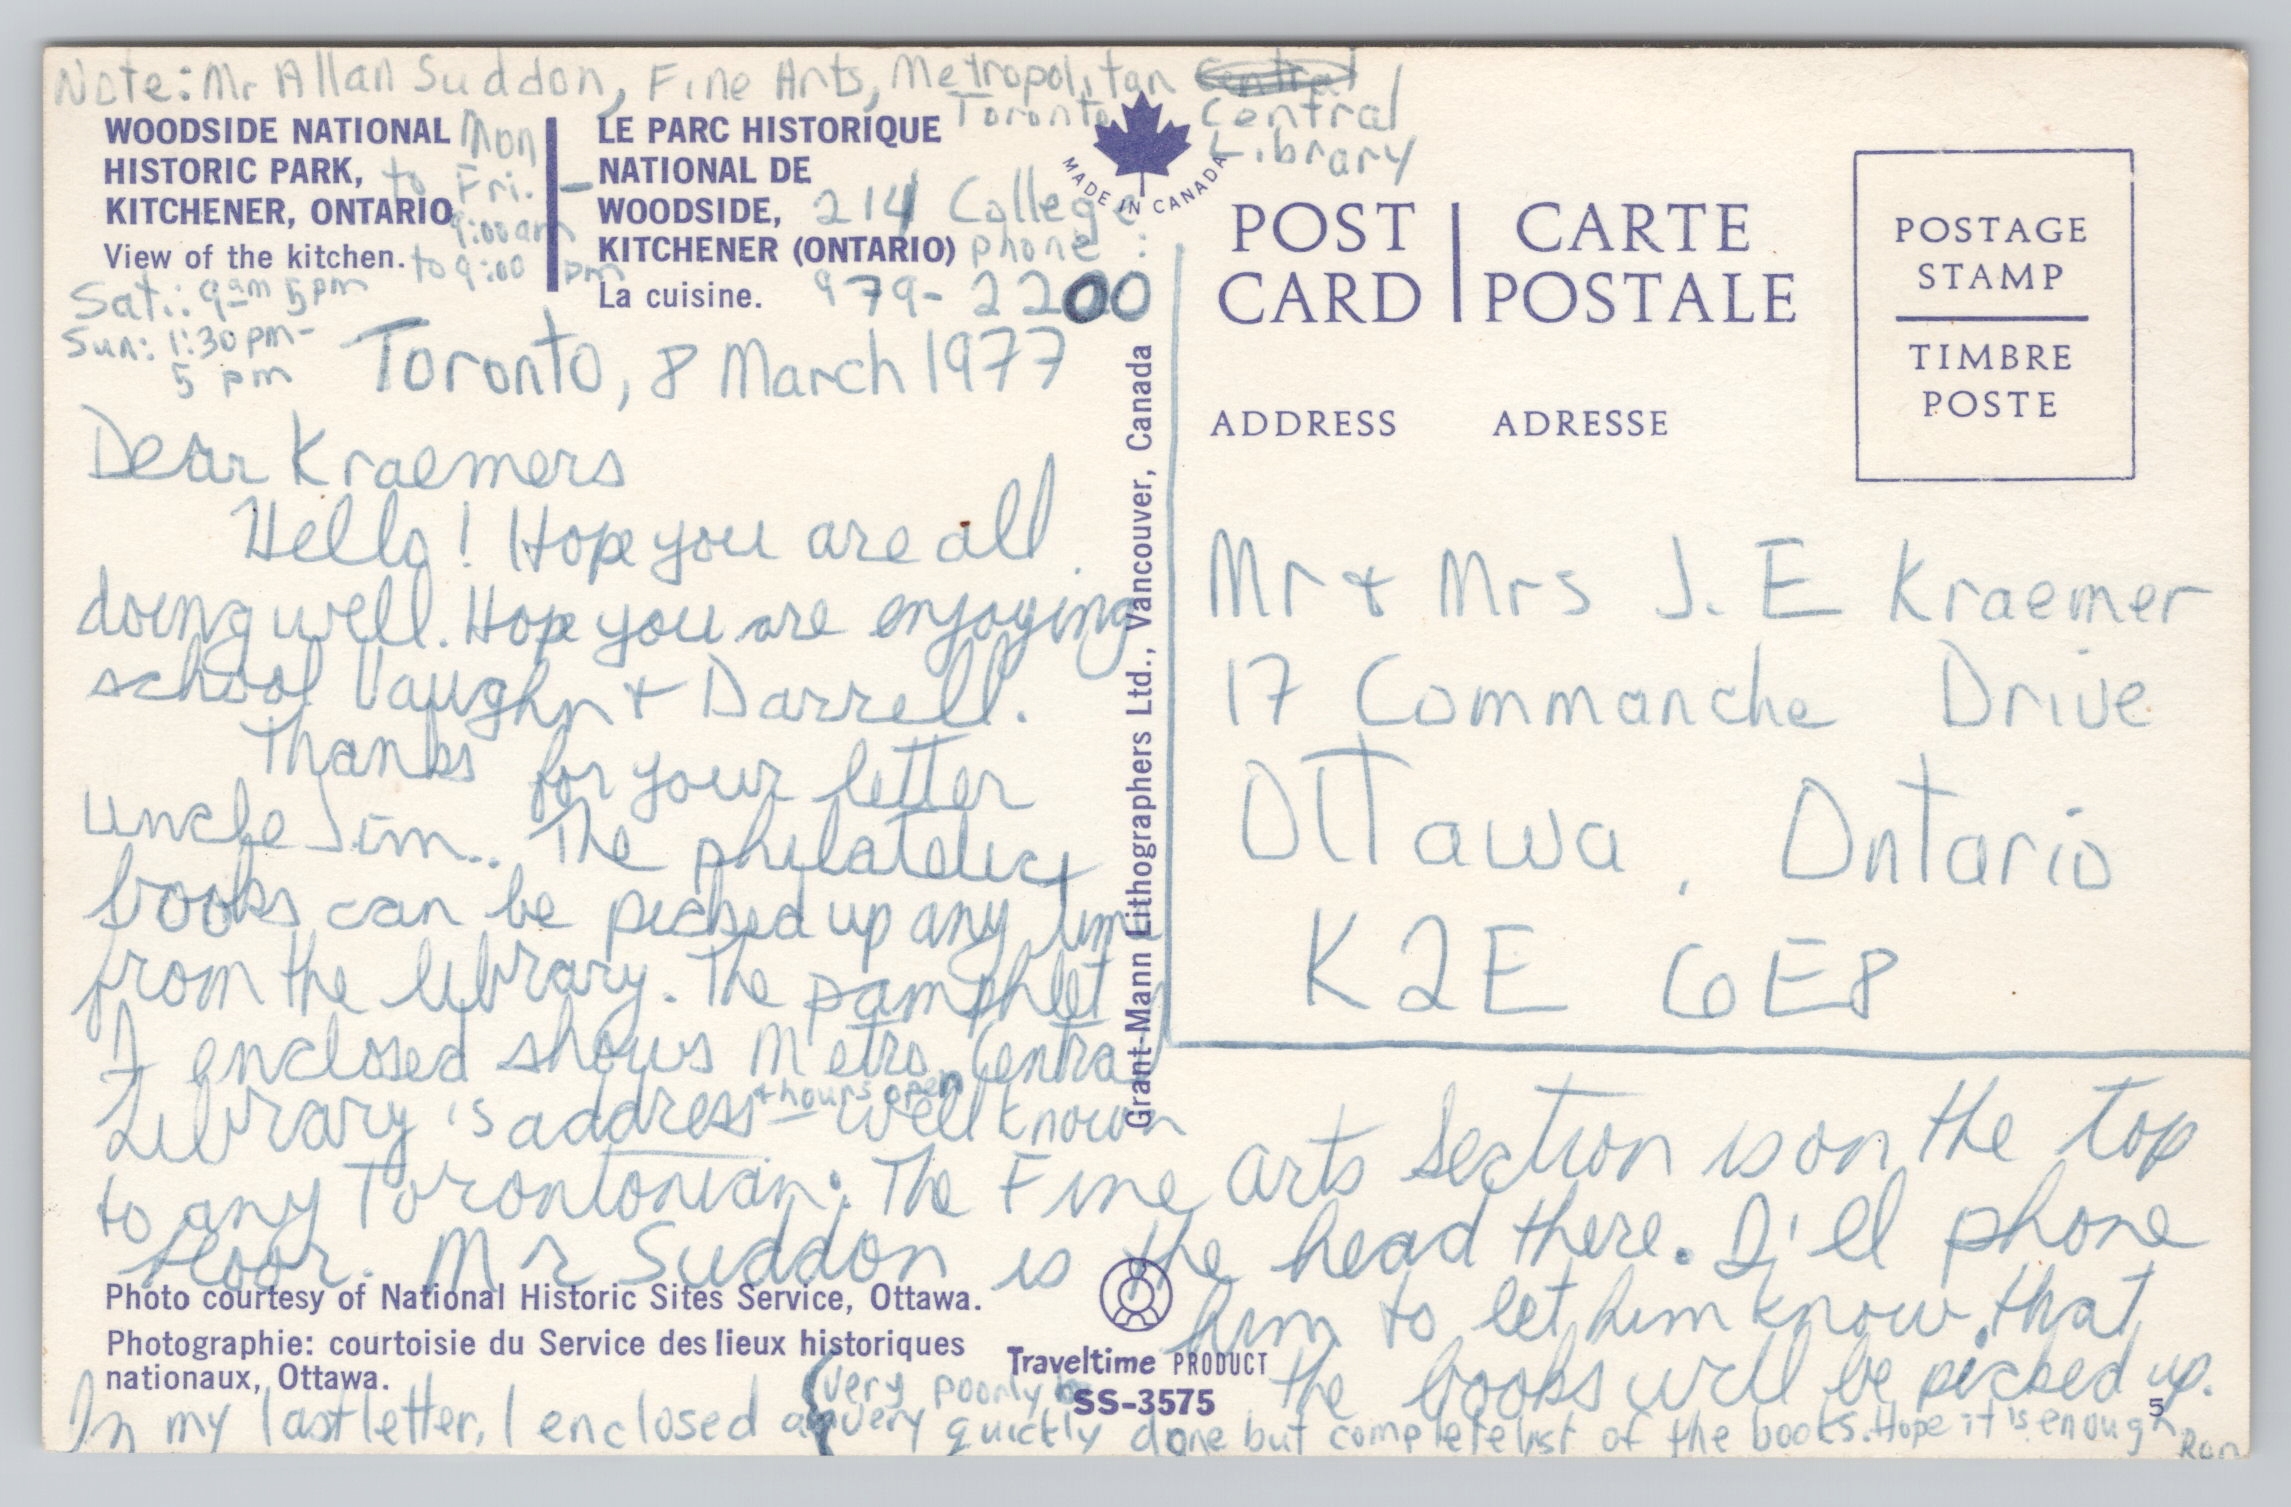 Note: Mr Allan Suddon, Fine Arts, Metropolitan Central
Toronto Central
Library
Mon
to Fri. -
9:00am
to 9:00 pm
Sat.: 9am 5pm
Sun: 1:30pm-
5 pm
214 College
phone:
979-2200
WOODSIDE NATIONAL
HISTORIC PARK,
KITCHENER, ONTARIO
View of the kitchen.
LE PARC HISTORIQUE
NATIONAL DE
WOODSIDE,
KITCHENER (ONTARIO)
La cuisine.
MADE IN CANADA
POST CARD
CARTE POSTALE
POSTAGE
STAMP
TIMBRE
POSTE
ADDRESS ADRESSE
Toronto, 8 March 1977
Dear Kraemers
Hello! Hope you are all
doing well. Hope you are enjoying
school Vaughn + Darrell.
Thanks for your letter
uncle Jim.. The philatelic
books can be picked up any time
from the library. The pamphlet
I enclosed shows Metro Central
Library 's address + hours open well known
to any Torontonian: The Fine Arts Section is on the top
floor. Mr Suddon is the head there. I'll phone
him to let him know that
the books will be picked up.
In my last letter, I enclosed a very quickly done but complete list of the books. Hope it is enough
(very poorly
Ron
Mr + Mrs J. E Kraemer
17 Commanche Drive
Ottawa, Ontario
K2E 6E8
Grant-Mann Lithographers Ltd., Vancouver, Canada
Photo courtesy of National Historic Sites Service, Ottawa.
Photographie: courtoisie du Service des lieux historiques
nationaux, Ottawa.
Traveltime PRODUCT
SS-3575
5